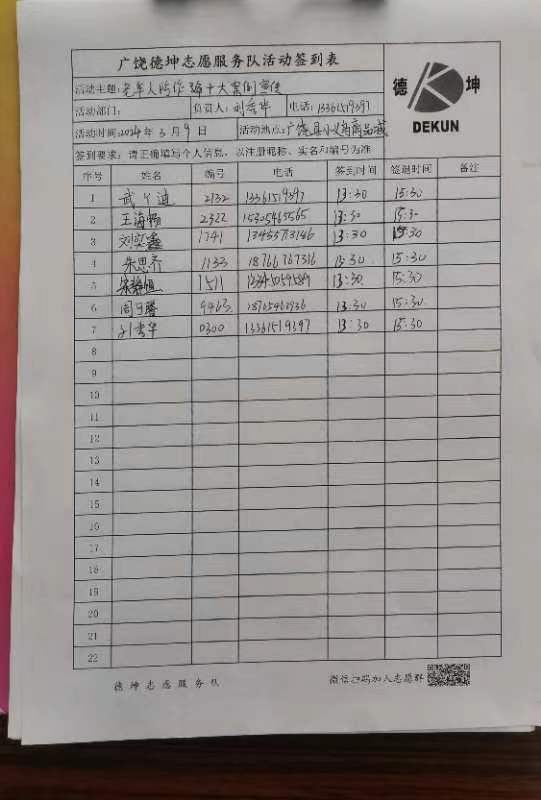 广饶德坤志愿服务队活动签到表
德 坤
DEKUN
活动主题: 老年人防诈骗十大案例宣传
活动部门: 负责人: 刘秀华 电话: 13361519397
活动时间: 2024年 3月 9日 活动地点: 广饶县小义乌商品城
签到要求: 请正确填写个人信息, 以注册昵称、实名和编号为准
序号 姓名 编号 电话 签到时间 签退时间 备注
1 武 2132 13361519397 13:30 15:30
2 王海 2322 15305465565 13:30 15:30
3 刘奕鑫 1741 13455713146 13:30 15:30
4 朱思齐 1133 18766767316 15:30 15:30
5 1511 13:30 15:30
6 周 9463 13:30 15:30
7 刘秀华 0300 13361519397 13:30 15:30
8
9
10
11
12
13
14
15
16
17
18
19
20
21
22
德坤志愿服务队 微信扫码加入志愿群